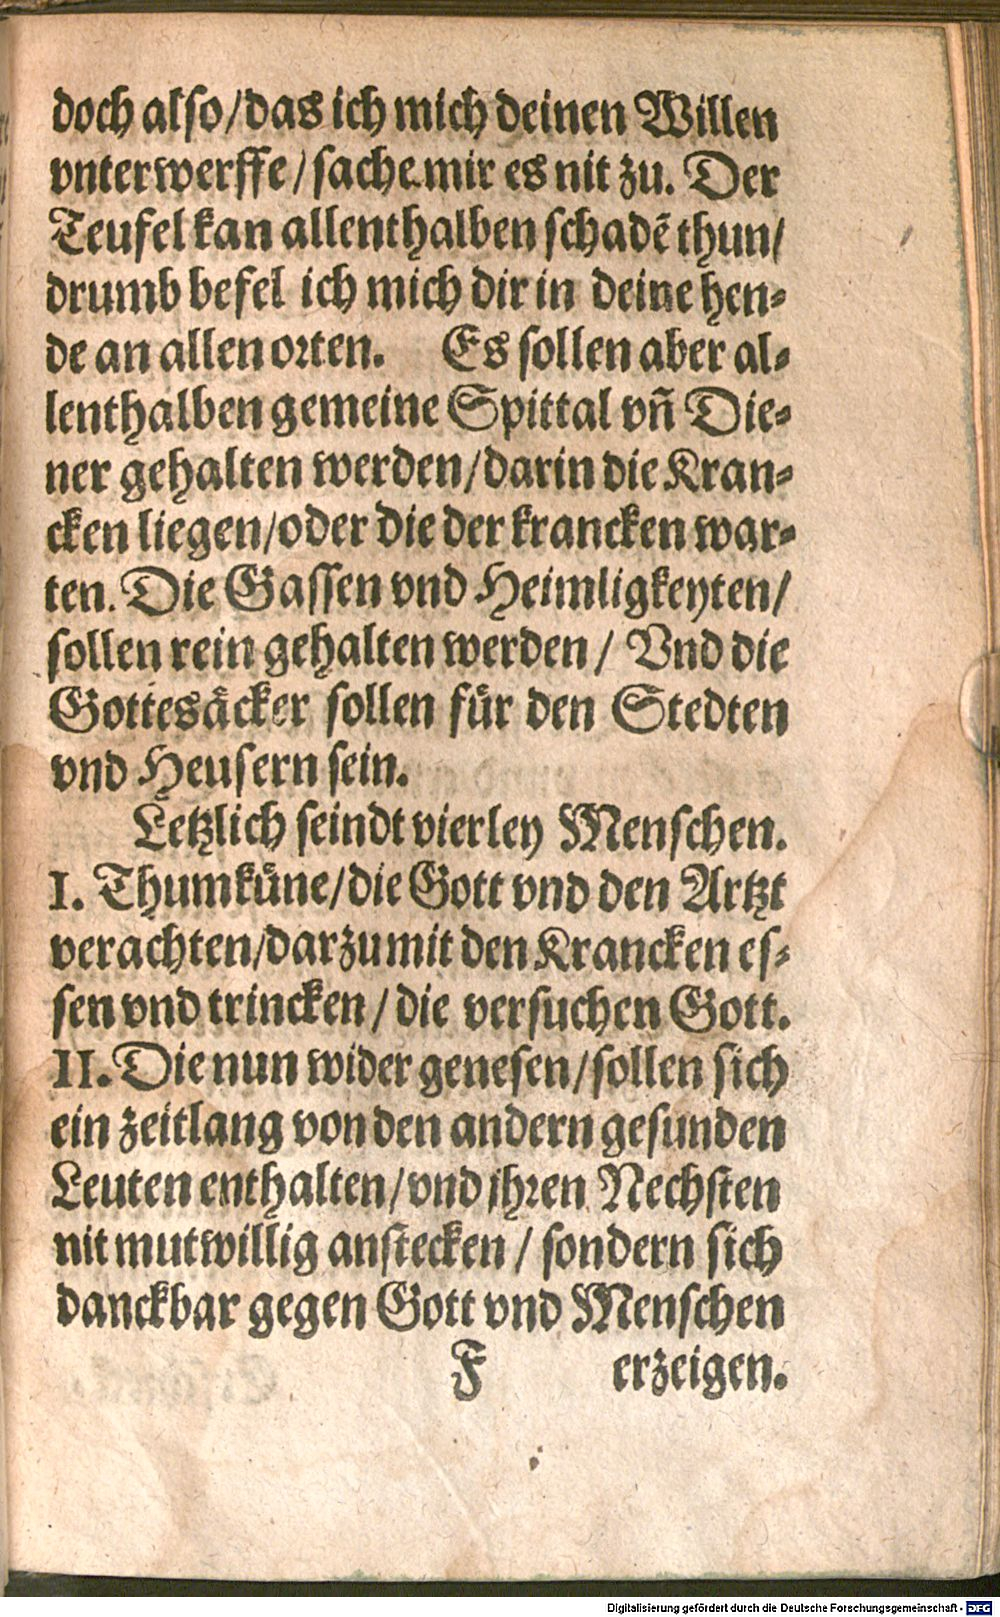 doch also/das ich mich deinen Willen
vnterwerffe/sache mir es nit zu. Der
Teufel kan allenthalben schadẽ thun/
drumb befel ich mich dir in deine hen-
de an allen orten. Es sollen aber al-
lenthalben gemeine Spittal vñ Die-
ner gehalten werden/darin die Kran-
cken liegen/oder die der krancken war-
ten. Die Gassen vnd Heimligkeyten/
sollen rein gehalten werden/ Vnd die
Gottesäcker sollen für den Stedten
vnd Heusern sein.
Letzlich seindt vierley Menschen.
I. Thumküne/die Gott vnd den Artzt
verachten/darzu mit den Krancken es-
sen vnd trincken/die versuchen Gott.
II. Die nun wider genesen/sollen sich
ein zeitlang von den andern gesunden
Leuten enthalten/vnd jhren Nechsten
nit mutwillig anstecken/sondern sich
danckbar gegen Gott vnd Menschen
F erzeigen.
Digitalisierung gefördert durch die Deutsche Forschungsgemeinschaft - DFG